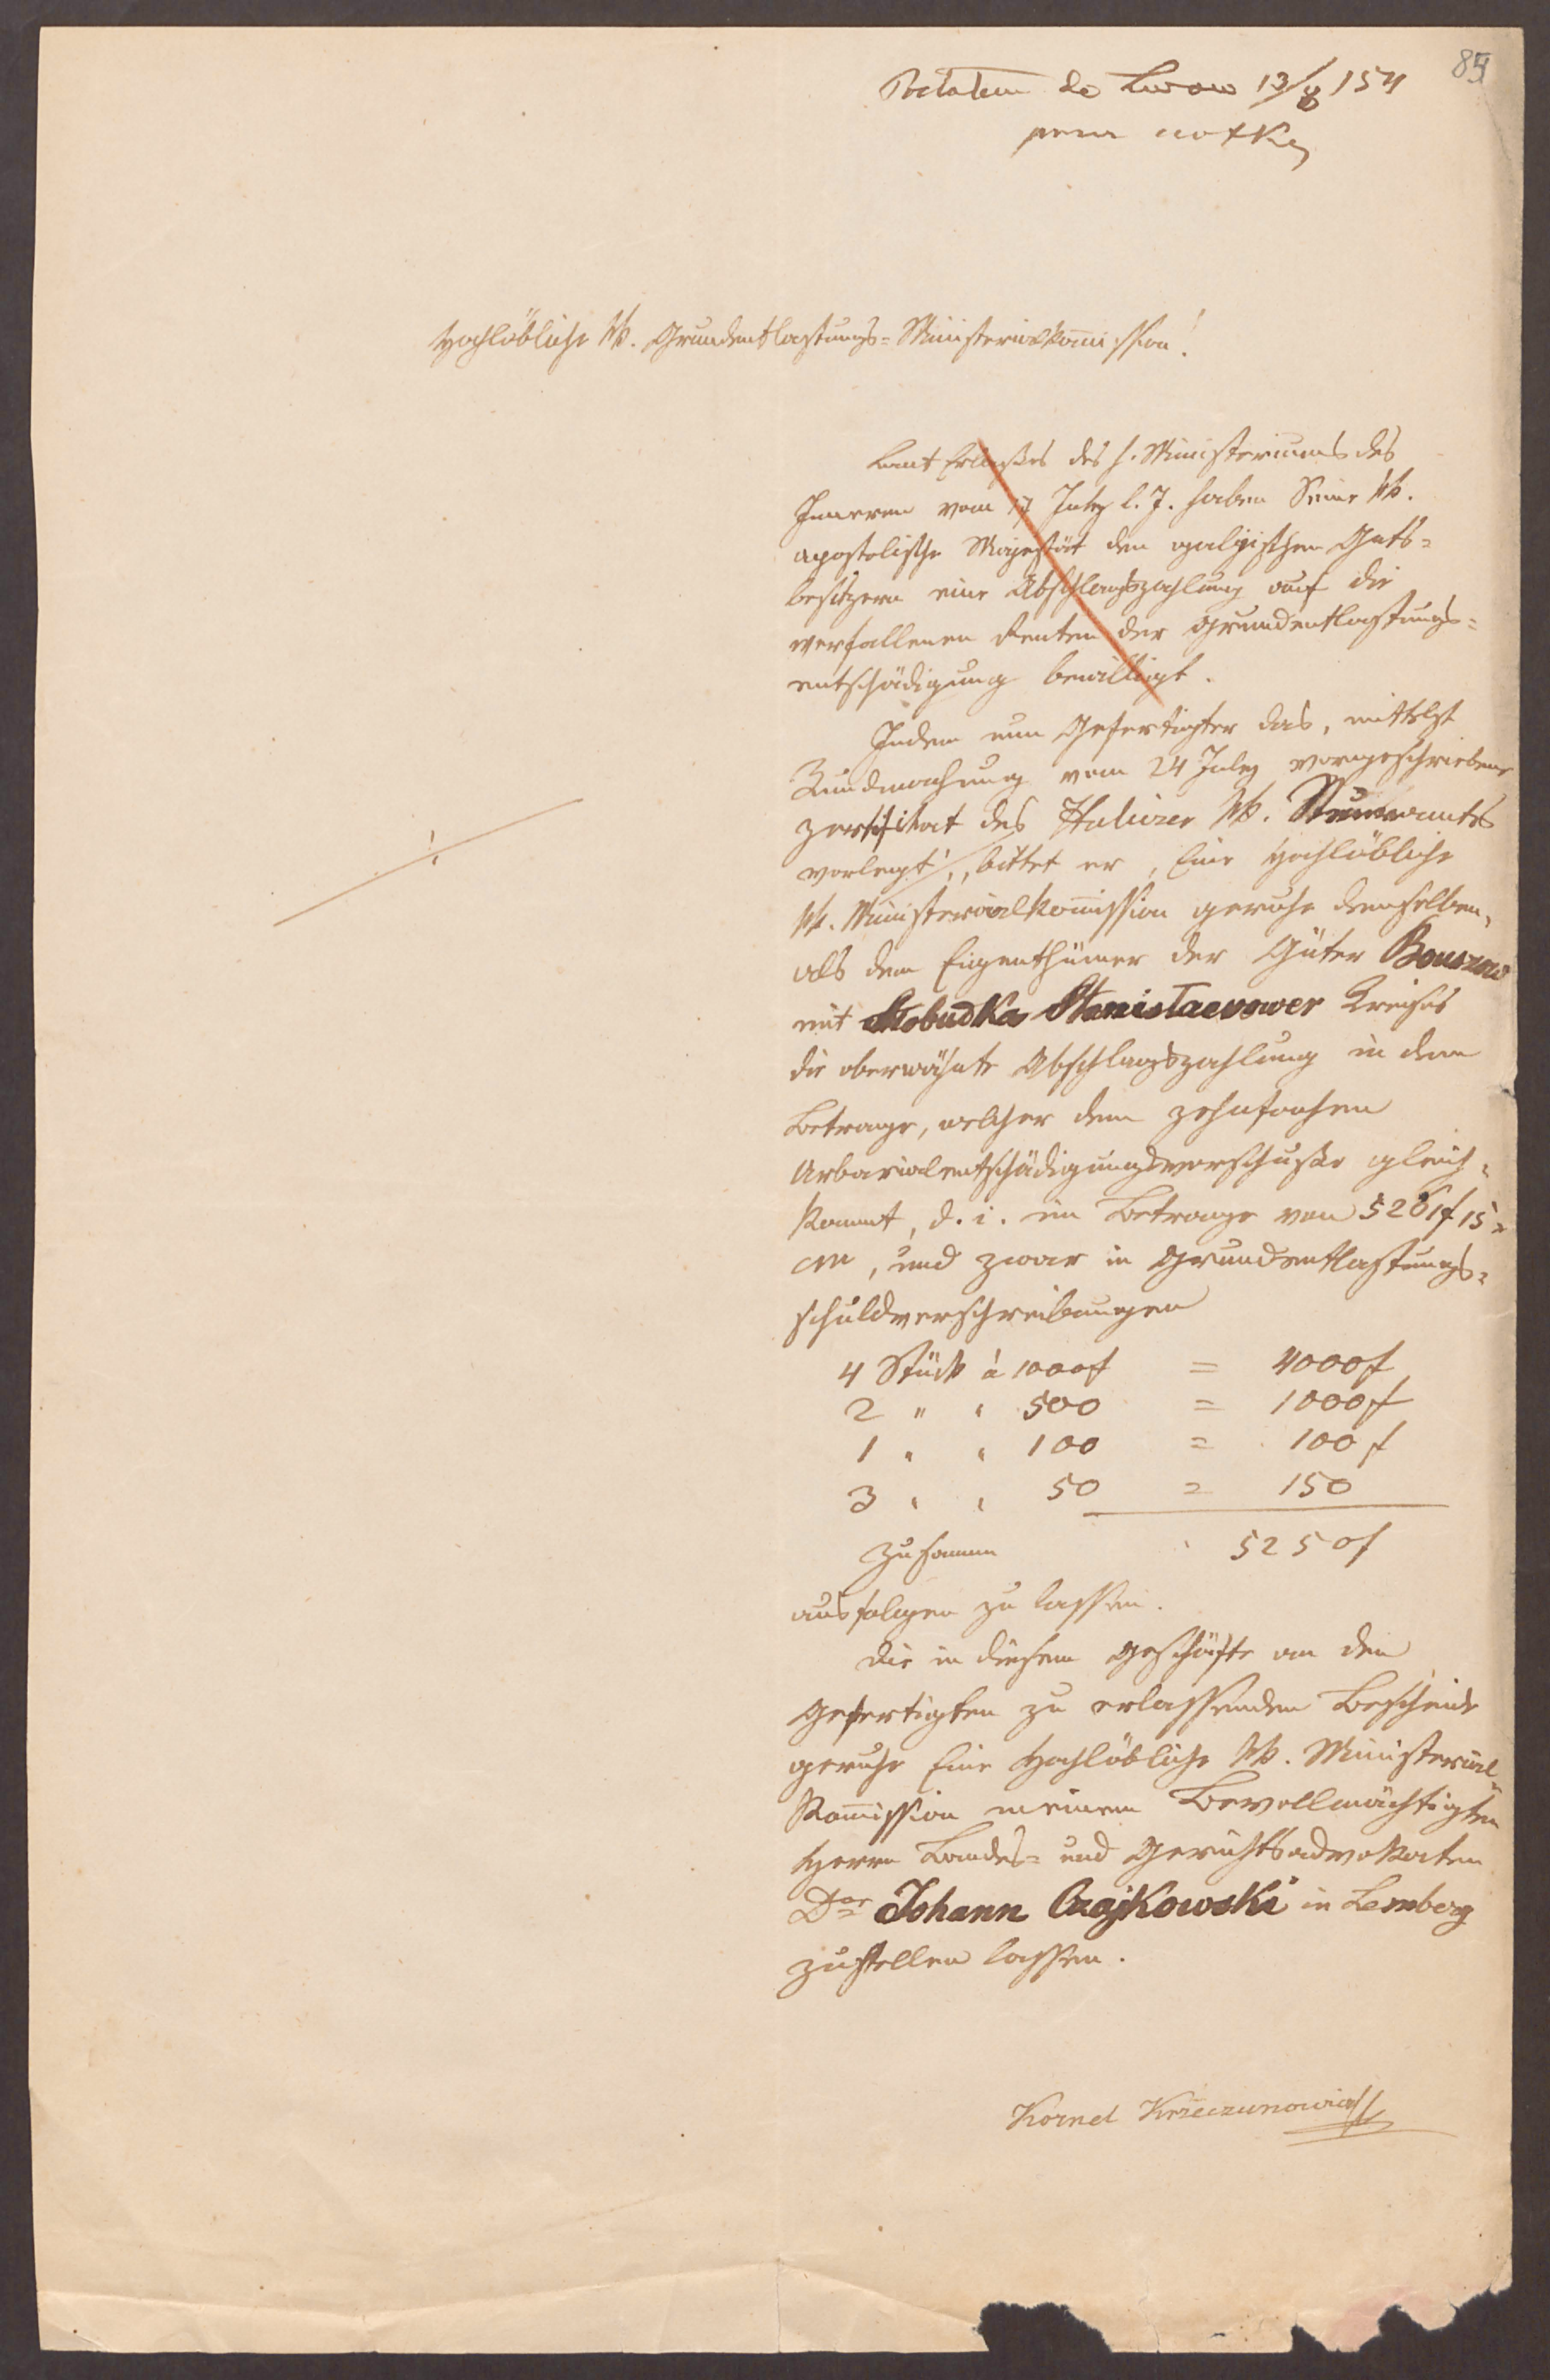 85
Podałem do Lwowa 13/8 1854
notkę
Hochlöbliche kk. Grundentlastungs=Ministerialkom̄ission!
Laut Erlaßes des h. Ministeriums des
Inneren vom 17 July l. J. haben Seine kk.
apostolische Majestät den galizischen Guts=
besitzern eine Abschlagszahlung auf die
verfallenen Renten der Grundentlastungs=
entschädigung bewilligt.
Indem nun Gefertigter das, mittelst
Kundmachung vom 24 July vorgeschriebene
Zertifikat des Haliczer kk. Steueramts
vorlegt ⁒, bittet er, Eine Hochlöbliche
kk. Ministerialkom̄ission geruhe demselben,
als dem Eigenthümer der Güter Bouszow
mit Słobudka Stanisławower Kreises
die oberwähnte Abschlagszahlung in dem
Betrage, welcher dem zehnfachen
Urbarialentschädigungsvorschuße gleich=
kommt, d. i. im Betrage von 5261f 15x
CM, und zwar in Grundentlastungs=
schuldverschreibungen
4 Stück à 1000f = 4000f
2 " " 500 = 1000f
1 " " 100 = 100f
3 " " 50 = 150
Zusamm 5250f
ausfolgen zu lassen.
Die in diesem Geschäfte an den
Gefertigten zu erlassenden Bescheide
geruhe Eine Hochlöbliche kk. Ministerial=
Kom̄ission meinem Bevollmächtigten
Herrn Landes= und Gerichtsadvokaten
Dor Johann Czajkowski in Lemberg
zustellen lassen.
Kornel Krzeczunowicz
⁒